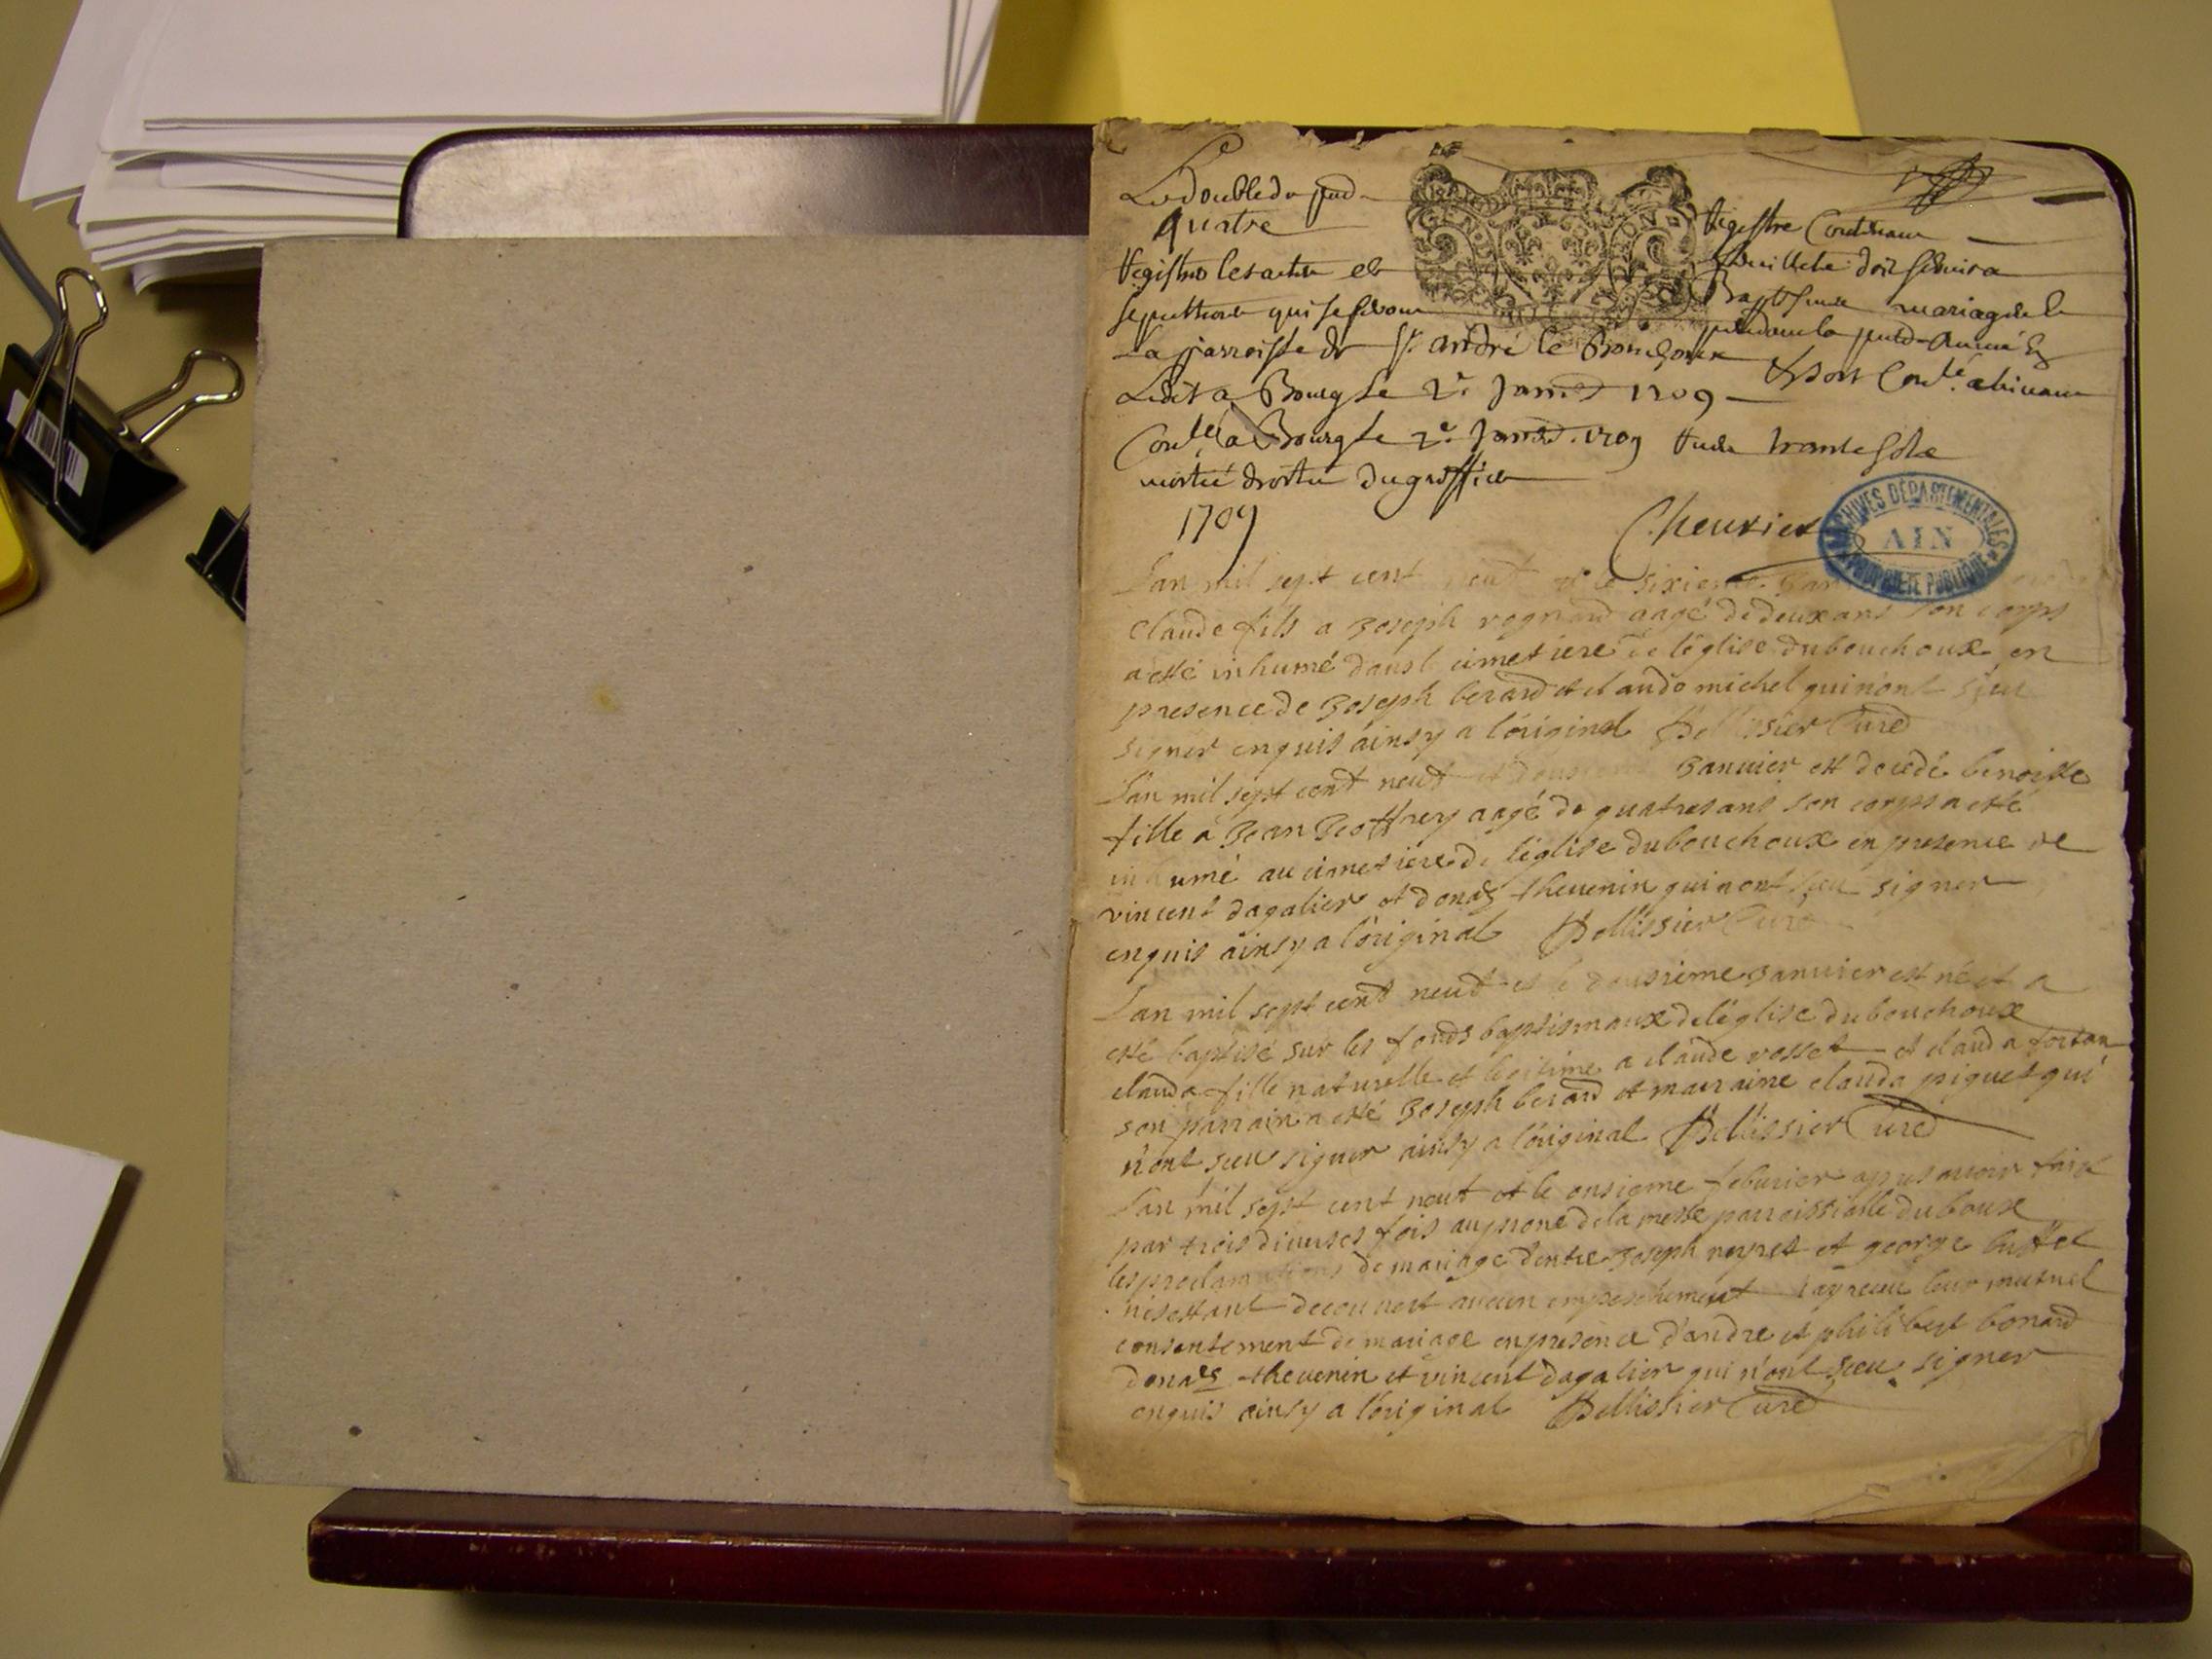 Le double du pnt
Registre Contenant
quatre
feuillets doit servir a
Registre les actes de
Baptesme mariage et
sepultures qui se feront
pendant la pnte Année En
La parroisse de St. andré le Bouchoux
Ledit a Bourg le 2e Janvr 1709
Contlé a Bourg le 2e Janvr. 1709 trante sols
moitié droits du greffier
1709
Cheurier
ARCHIVES DÉPARTEMENTALES
AIN
PROPRIETE PUBLIQUE
Lan mil sept cent neuf et le sixieme
claude fils a Joseph rognard aagé de deux ans son corps
a esté inhumé dans l cimetiere de léglise du bouchoux en
presence de Joseph berard et claude michel qui n'ont sceu
signer enquis ainsy a l'original Pellissier Curé
L'an mil sept cent neuf et Janvier est decedé benoiste
fille a Jean Geoffrey aagé de quatres ans son corps a esté
inhumé au cimetiere de léglise du bouchoux en presence de
vincent dagalier et donas thevenin qui n'ont sceu signer
enquis ainsy a l'original Pellissier Curé
L'an mil sept cent neuf et le dousieme Janvier est né et a
esté baptisé sur les fonds baptismaux de léglise du bouchoux
clauda fille naturelle et legitime a claude rosset et clauda
son parrain a esté Joseph berard et marraine clauda piquet qui
n'ont sceu signer ainsy a l'original Pellissier Curé
L'an mil sept cent neuf et le onsieme feburier apres avoir fait
par trois diverses fois au prone de la messe parroissialle du
les proclamations de mariage dentre Joseph neyret et george buffet
ne sestant decouvert aucun empeschement j'ay receu leur mutuel
consentement de mariage en presence d'andre et philibert bonard
donas thevenin et vincent dagalier qui n'ont sceu signer
enquis ainsy a l'original Pellissier Curé